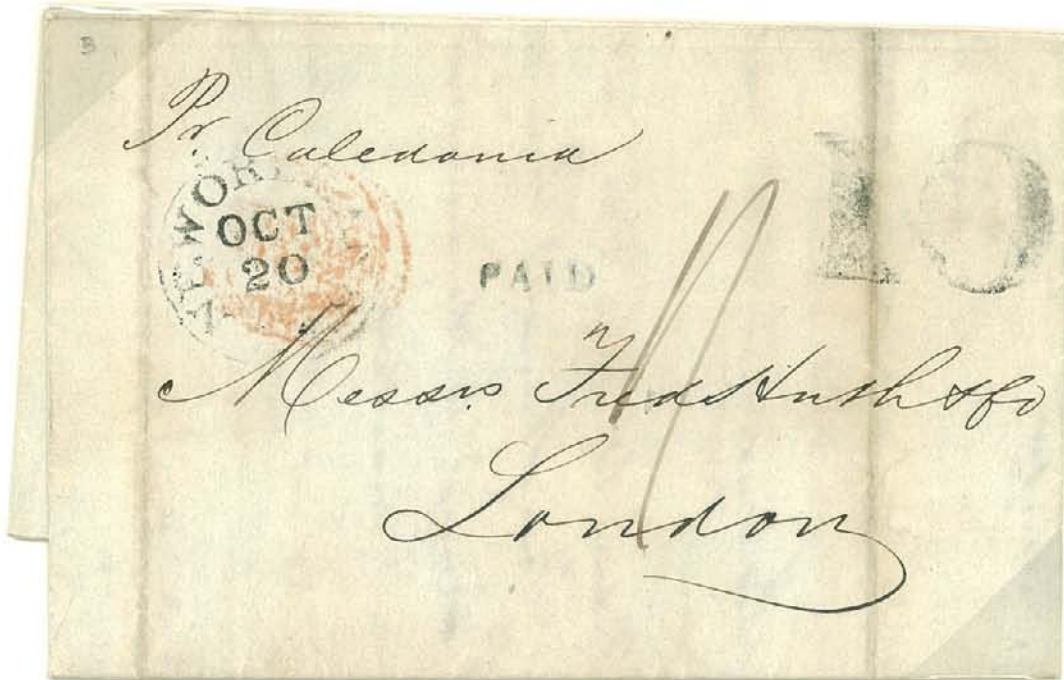 B
Pr. Caledonia
NEW YORK
OCT
20
PAID
10
Messrs Fredk Huth & Co
London